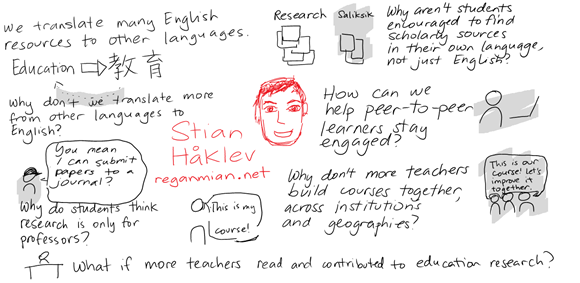 we translate many English
resources to other languages.
Education ⇨ 教育
Why don't we translate more
from other languages to
English?
Research Saliksik
Why aren't students
encouraged to find
scholarly sources
in their own language,
not just English?
Stian
Håklev
reganmian.net
How can we
help peer-to-peer
learners stay
engaged?
You mean
I can submit
papers to a
journal?
Why do students think
research is only for
professors?
This is my
course!
Why don't more teachers
build courses together,
across institutions
and geographies?
This is our
course! Let's
improve it
together.
What if more teachers read and contributed to education research?